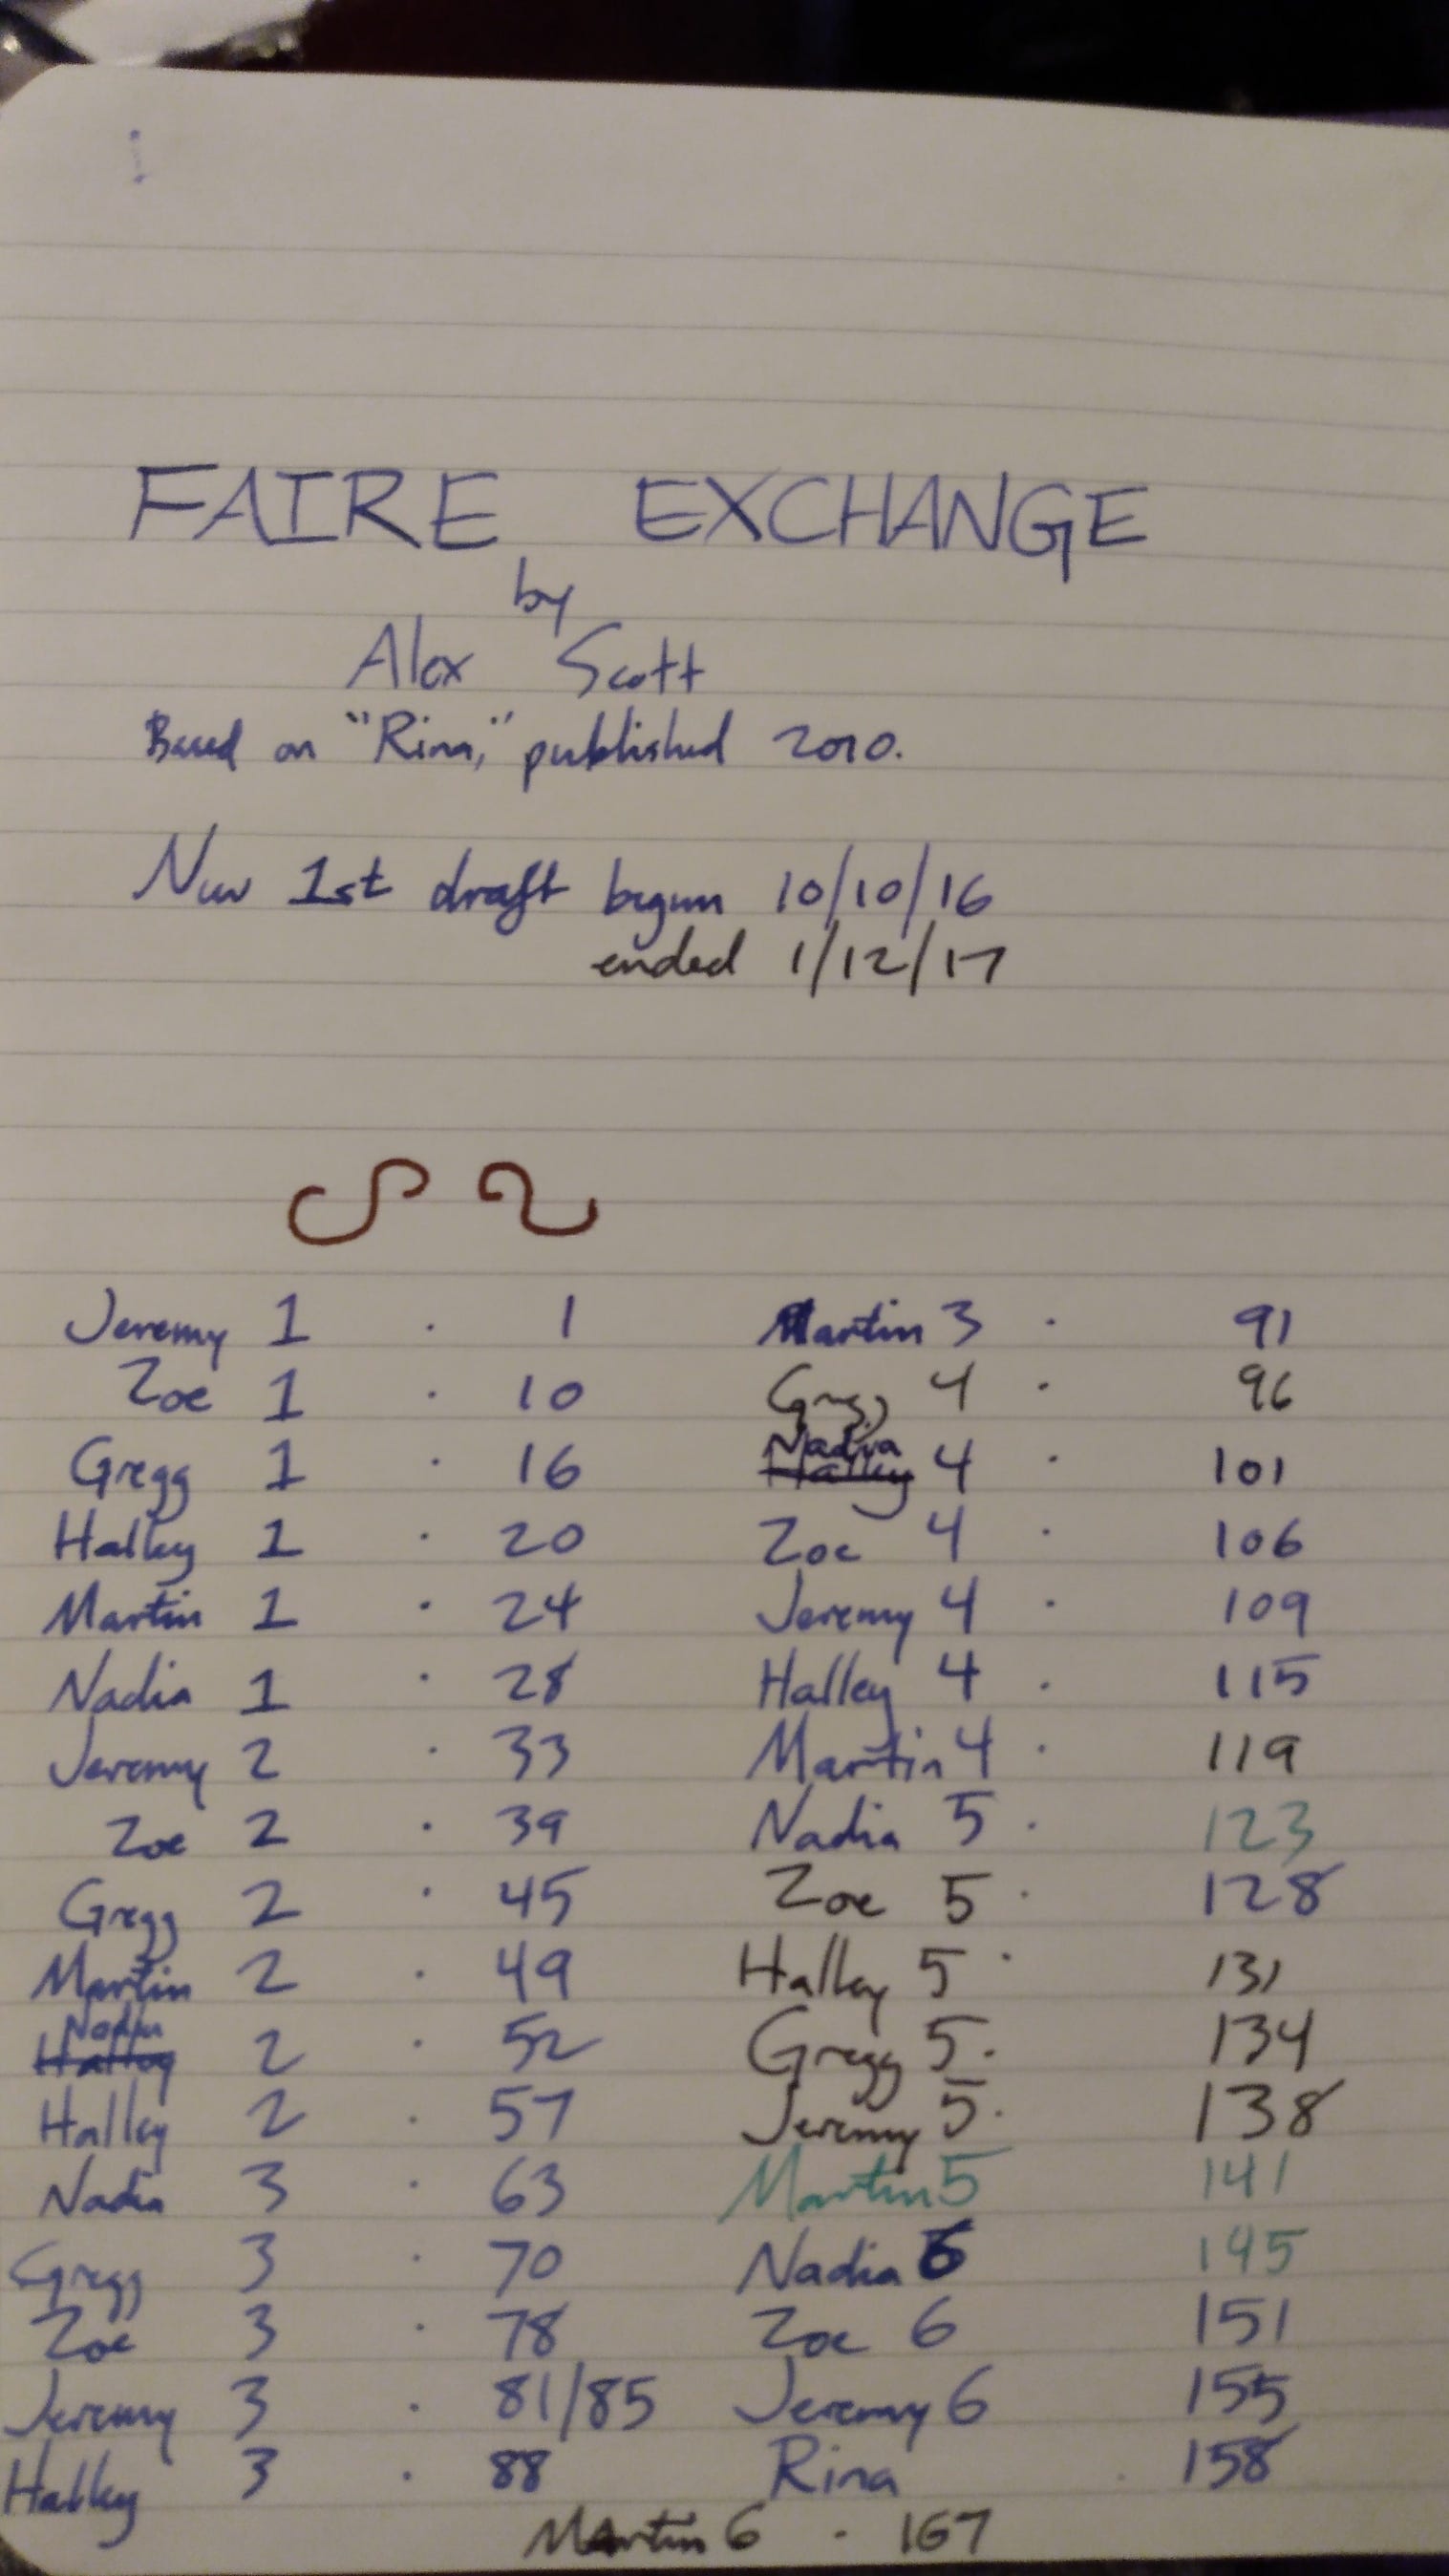 FAIRE EXCHANGE
by
Alex Scott
Based on "Rina," published 2010.
New 1st draft begun 10/10/16
ended 1/12/17
Jeremy 1 · 1
Zoe 1 · 10
Gregg 1 · 16
Halley 1 · 20
Martin 1 · 24
Nadia 1 · 28
Jeremy 2 · 33
Zoe 2 · 39
Gregg 2 · 45
Martin 2 · 49
Nadia
Halley 2 · 52
Halley 2 · 57
Nadia 3 · 63
Gregg 3 · 70
Zoe 3 · 78
Jeremy 3 · 81/85
Halley 3 · 88
Martin 3 · 91
Gregg 4 · 96
Nadia
Halley 4 · 101
Zoe 4 · 106
Jeremy 4 · 109
Halley 4 · 115
Martin 4 · 119
Nadia 5 · 123
Zoe 5 · 128
Halley 5 · 131
Gregg 5 · 134
Jeremy 5 · 138
Martin 5 141
Nadia 6 145
Zoe 6 151
Jeremy 6 155
Rina · 158
Martin 6 · 167